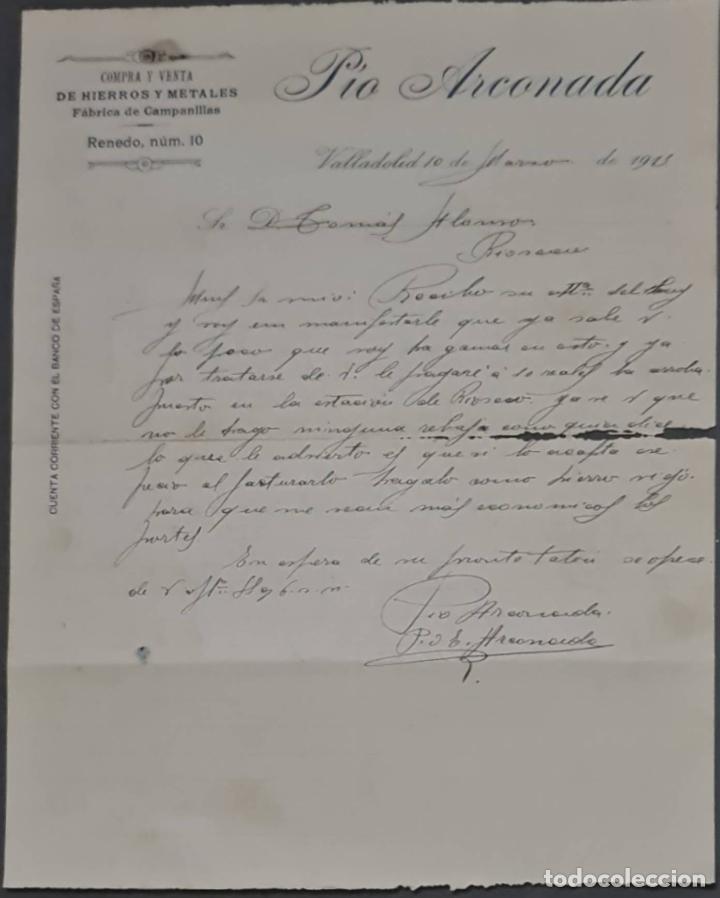 COMPRA Y VENTA
DE HIERROS Y METALES
Fábrica de Campanillas
Renedo, núm. 10
Pío Arconada
Valladolid 10 de Marzo de 191
Sr D. Tomás Alonso
Rioseco
Muy Sr mio: Recibo su del
y voy em manifestarle que ya sabe V
lo poco que voy ha ganar en esto y ya
por tratarse de V. le pagaré á reales la arroba
puesto en la estación de Rioseco ya ve V que
no le hago ninguna rebaja como quien dice
lo que le advierto es que si lo acepta ese
pecio al facturarlo hagalo como hierro viejo
para que me sean más economicos los
portes
En espera de su pronta se
de V
Pio Arconada
P. E. Arconada
CUENTA CORRIENTE CON EL BANCO DE ESPAÑA
todocoleccion